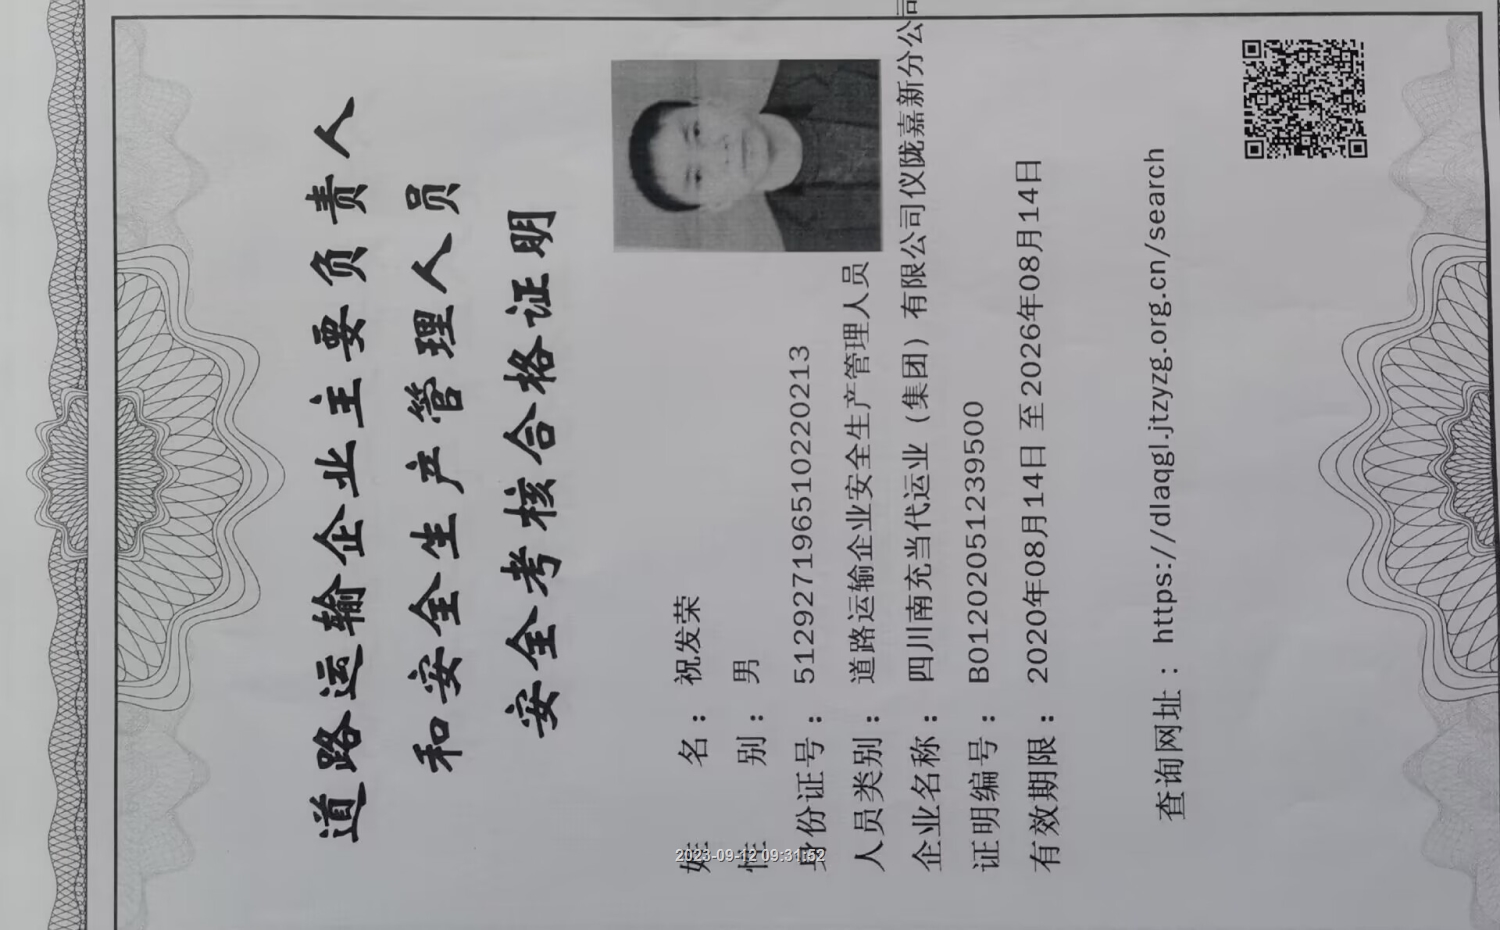 道路运输企业主要负责人
和安全生产管理人员
安全考核合格证明
姓名：祝发荣
性别：男
身份证号：512927196510220213
人员类别：道路运输企业安全生产管理人员
企业名称：四川南充当代运业（集团）有限公司仪陇嘉新分公司
证明编号：B012020551239500
有效期限：2020年08月14日 至 2026年08月14日
查询网址：https://dlaqgl.jtzyzg.org.cn/search
2023-09-12 09:31:52